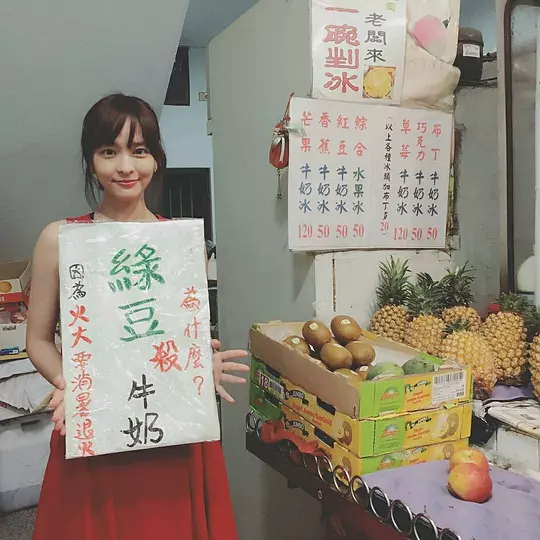 老闆來
一碗剉冰
布丁牛奶冰 50
巧克力牛奶冰 50
草莓牛奶冰 50
以上各種冰類加布丁多20
綜合水果冰 50
紅豆牛奶冰 50
香蕉牛奶冰 50
芒果牛奶冰 120
為什麼?
綠豆殺牛奶
因為火大要消暑退火